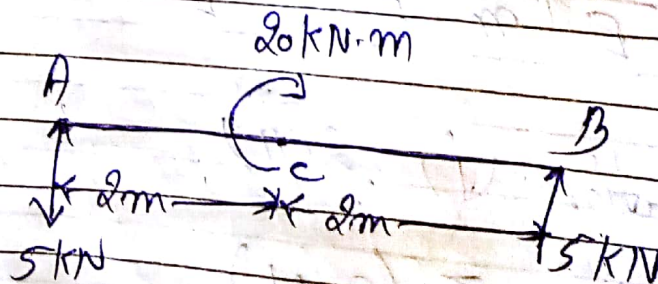 20 KN.m
A
B
C
2m
2m
5 KN
5 KN